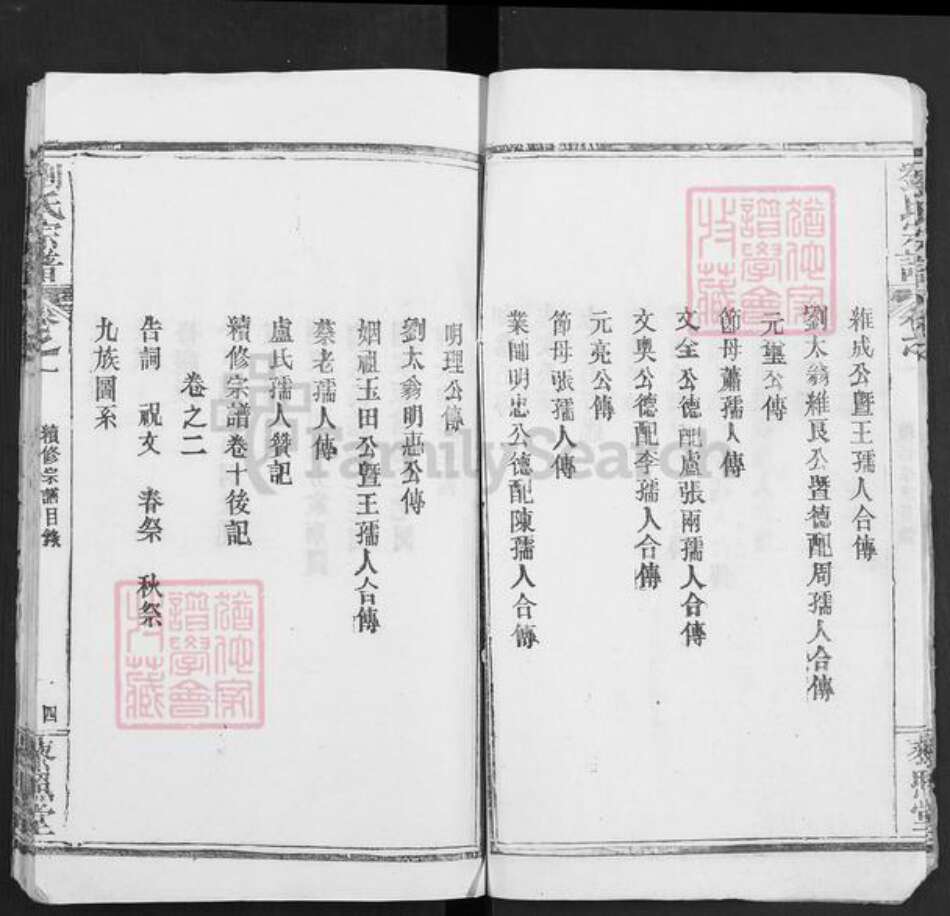 維成公暨王孺人合傳
劉太翁維艮公暨德配周孺人合傳
元璽公傳
節母蕭孺人傳
文全公德配盧張兩孺人合傳
文奧公德配李孺人合傳
元亮公傳
節母張孺人傳
業師明忠公德配陳孺人合傳
明理公傳
劉太翁明忠公傳
姻祖玉田公暨王孺人合傳
蔡老孺人傳
盧氏孺人贊記
續修宗譜卷十後記
卷之二
告詞 祝文 春祭 秋祭
九族圖系
劉氏宗譜
卷之一
續修宗譜目錄
四
藜照堂
劉氏宗譜
藜照堂
譜學會
收藏
譜學會
收藏
FamilySearch